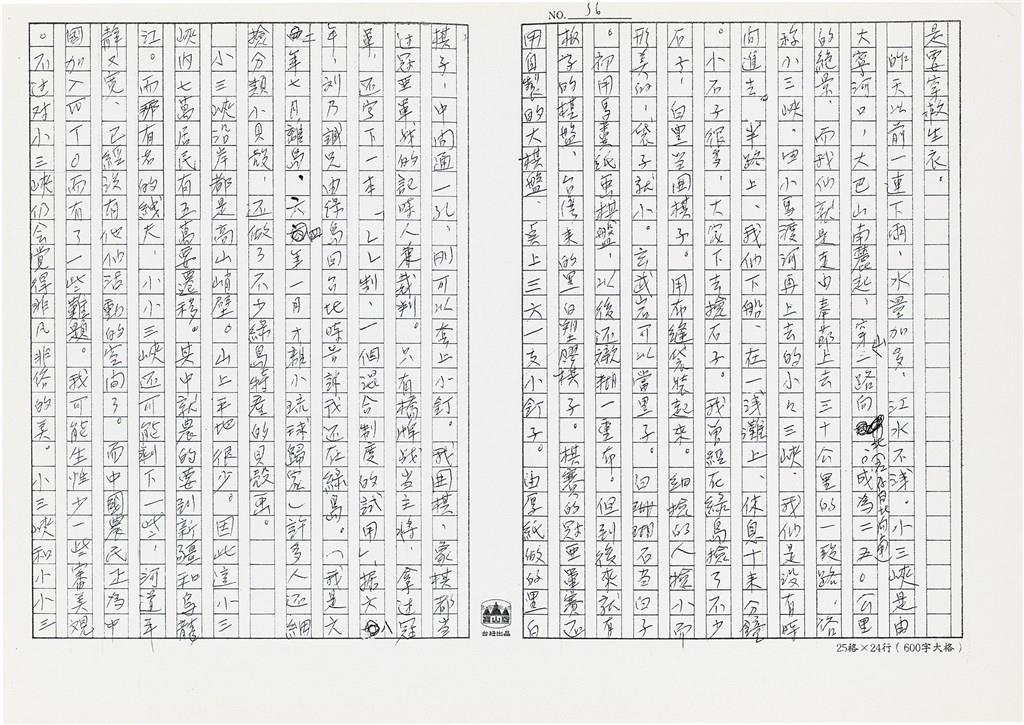 NO. 56
是要穿救生衣。
昨天以前一連下雨、水量加多、江水不淺。小三峽是由
大寧河口、大巴山南麓起、穿山一路向北(江水自北向南)。成為二五〇公里
的絕景、而我们就是走由奉節上去三十公里的一段路、俗
称小三峽、由小馬渡河再上去的小小三峽、我们是沒有時
向進去。半路上、我们下船、在一浅灘上、休息十来分鐘
。小石子很多、大家下去撿石子。我曾經在綠島撿了不少
石子、白黑呈圍棋子。用布縫袋裝起來。細撿的人撿小而
形美的、袋子就小。玄武岩可以當黑子。白珊瑚石当白子
。初用馬糞紙画棋盤、以後还襯糊一重布。但到後來就有
板子的棋盤、台灣来的黑白塑膠棋子。棋賽的冠亜軍賽还
用自製的大棋盤、真上三六一支小釘子。由厚紙做的黑白
棋子、中間通一孔、剛可以套上小釘。我圍棋、象棋都当
过冠亜軍战的記味人兼裁判。只有橋牌战当主將、拿过冠
軍、还写下一本「ㄥㄥ制、一個混合制度的試用」据六八
年、刘乃誠兄由绿島回台北時告訴我还在綠島。(我是六
二年七月離島、六四年一月才離小琉球歸家)許多人还細
撿分類小貝殼、还做了不少綠島特産的貝殼画。
小三峽沿岸都是高山峭壁。山上平地很少。因此這小三
峽內七萬居民有五萬要遷移。其中就農的要到新疆和烏龍
江。而那有名的縴夫、小小三峽还可能剩下一些、河道平
靜又寬、已經沒有他们活動的空间了。而中國農民工為中
國加入四丁〇而有了一些難題。我可能生性少一些審美观
。不过对小三峽仍会覚得非凡非俗的美。小三峽和小小三
高山牌
台紐出品
25格×24行(600字大格)